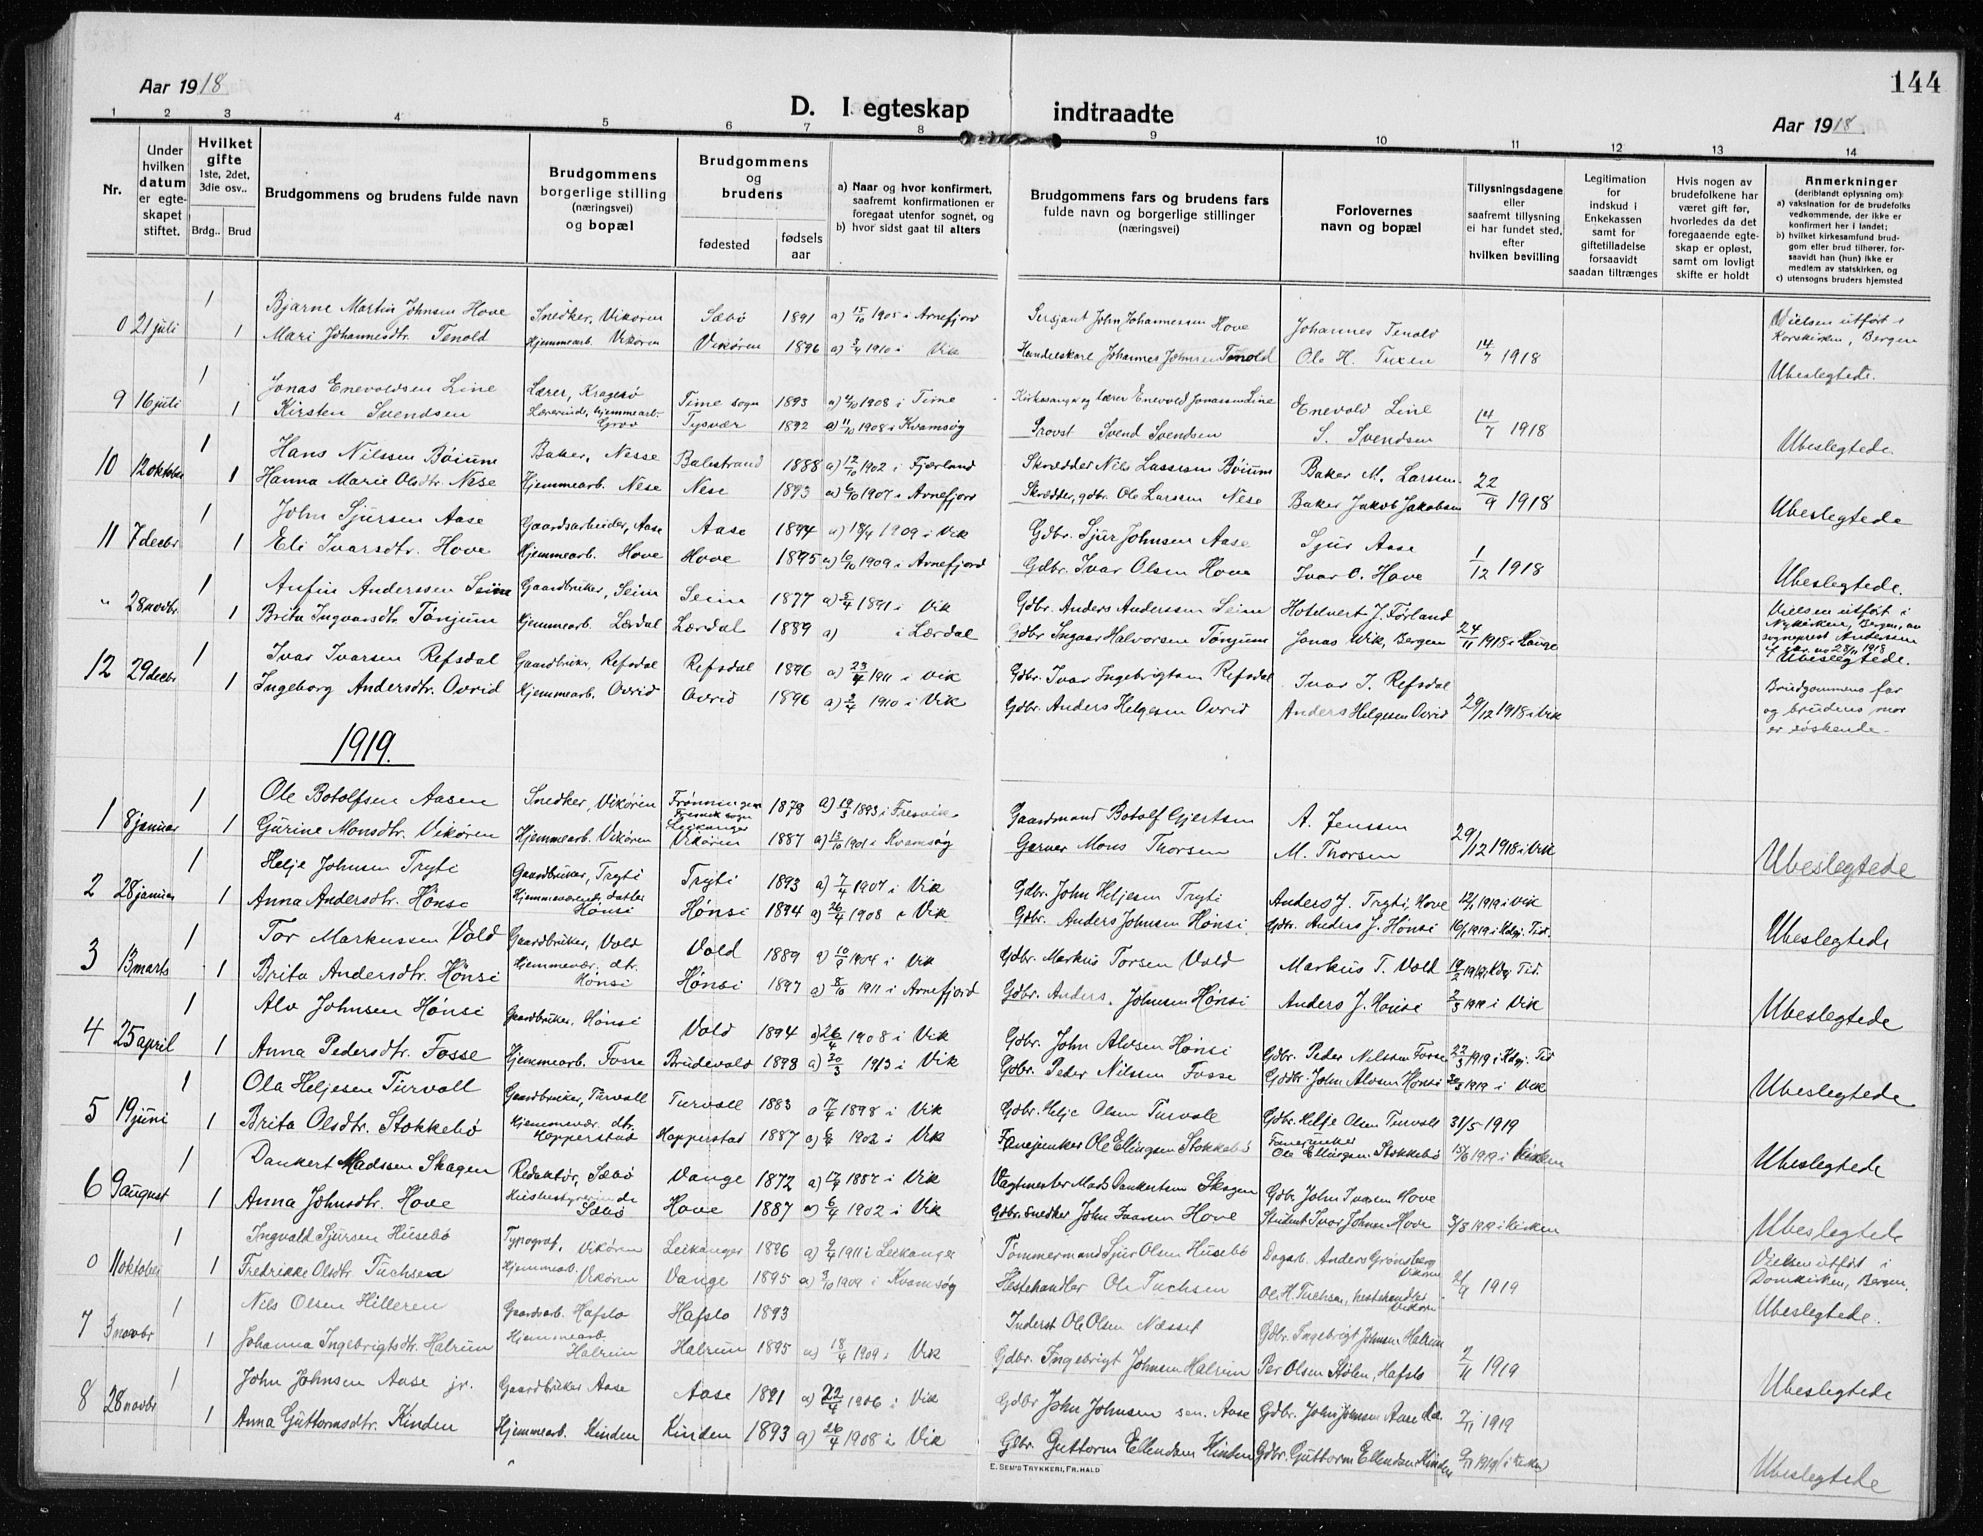 144
Aar 1918
D. I egteskap indtraadte
Aar 1918
1 2 3 4 5 6 7 8 9 10 11 12 13 14
Nr.
Under hvilken datum er egteskapet stiftet.
Hvilket gifte 1ste, 2det, 3die osv..
Brdg.. Brud
Brudgommens og brudens fulde navn
Brudgommens borgerlige stilling (næringsvei) og bopæl
Brudgommens og brudens
fødested
fødsels aar
a) Naar og hvor konfirmert, saafremt konfirmationen er foregaat utenfor sognet, og
b) hvor sidst gaat til alters
Brudgommens fars og brudens fars fulde navn og borgerlige stillinger (næringsvei)
Forlovernes navn og bopæl
Tillysningsdagene eller saafremt tillysning ei har fundet sted, efter hvilken bevilling
Legitimation for indskud i Enkekassen samt for giftetilladelse forsaavidt saadan tiltrænges
Hvis nogen av brudefolkene har været gift før, hvorledes da det foregaaende egteskap er opløst, samt om lovligt skifte er holdt
Anmerkninger (deriblandt oplysning om)
a) vaksination for de brudefolks vedkommende, der ikke er konfirmert her i landet;
b) hvilket kirkesamfund brudgom eller brud tilhører, forsaavidt han (hun) ikke er medlem av statskirken, og
c) utensogns bruders hjemsted
0 21 juli 1 Bjarne Martin Johnsen Hove Snedker, Vikøren Sæbø 1891 a) 15/10 1905 i Arnefjord Sersjant John Johannessen Hove Johannes Tenold 14/7 1918 Vielsen utført i Korskirken, Bergen
1 Mari Johannesdtr. Tenold Hjemmearb. Vikøren Vikøren 1896 a) 3/4 1910 i Vik Handelskarl Johannes Johnsen Tenold Ole H. Tuxen Ubeslegtede.
9 16 juli 1 Jonas Enevoldsen Line Lærer, Kragerø Time sogn 1893 a) 4/10 1908 i Time Kirkesanger og lærer Enevold Jonassen Line Enevold Line 14/7 1918
1 Kirsten Svendsen Lærerinde, hjemmearb. Grov Tysvær 1892 a) 11/10 1908 i Kvamsøg Provst Svend Svendsen S. Svendsen Ubeslegtede.
10 12 oktober 1 Hans Nilssen Bøium Baker, Nesse Balestrand 1888 a) 12/10 1902 i Fjærland Skrædder Nils Larssen Bøium Baker M. Larssen 22/9 1918
1 Hanna Marie Olsdtr. Nese Hjemmearb. Nese Nese 1893 a) 6/10 1907 i Arnefjord Skrædder, gdbr. Ole Larssen Nese Baker Jakob Jakobsen Ubeslegtede
11 7 decbr 1 John Sjursen Aase Gaardsarbeider, Aase Aase 1894 a) 18/4 1909 i Vik Gdbr. Sjur Johnsen Aase Sjur Aase 1/12 1918
1 Eli Ivarsdtr. Hove Hjemmearb. Hove Hove 1895 a) 10/10 1909 i Arnefjord Gdbr. Ivar Olsen Hove Ivar O. Hove Ubeslegtede.
" 28 novbr. 1 Anfin Anderssen Seim Gaardbruker, Seim Seim 1877 a) 5/4 1891 i Vik Gdbr. Anders Anderssen Seim Hotelvert J. Førland 24/11 1918 i Vielsen utført i Nykirken, Bergen, av sogneprest Andersen
1 Brita Ingvarsdtr. Tønjum Hjemmearb. Lærdal Lærdal 1889 a) i Lærdal Gdbr Ingvar Halvorsen Tønjum Jonas Wik, Bergen 28/11 1918 Ubeslegtede.
12 29 decbr 1 Ivar Ivarsen Refsdal Gaardbruker, Refsdal Refsdal 1896 a) 23/4 1911 i Vik Gdbr. Ivar Ingebrigtsen Refsdal Ivar I. Refsdal 29/12 1918 i Vik
1 Ingeborg Andersdtr. Ovrid Hjemmearb. Ovrid Ovrid 1896 a) 3/4 1910 i Vik Gdbr. Anders Helgesen Ovrid Anders Helgesen Ovrid Brudgommens far og brudens mor er søskende.
1919.
1 8 januar 1 Ole Botolfsen Aasen Snedker, Vikøren Frønningen Fresvik sogn Leikanger 1878 a) 19/3 1893 i Fresvik. Gaardmand Botolf Gjertsen A. Jenssen 29/12 1918 i Vik
1 Gurine Monsdtr. Vikøren Hjemmearb. Vikøren Vikøren 1887 a) 13/10 1901 i Kvamsøg Garver Mons Thorsen M. Thorsen Ubeslegtede
2 28 januar 1 Helje Johnsen Tryti Gaardbruker, Tryti Tryti 1893 a) 7/4 1907 i Vik Gdbr. John Heljesen Tryti Anders J. Tryti, Hove 12/1 1919 i Vik
1 Anna Andersdtr. Hønsi Hjemmeværende datter Hønsi Hønsi 1894 a) 26/4 1908 i Vik Gdbr. Anders Johnsen Hønsi. Gdbr. Anders J. Hönsi 16/1 1919 i Kdgj. Tid. Ubeslegtede
3 13 marts 1 Tor Markussen Vold Gaardbruker, Vold Vold 1889 1904 i Vik Gdbr. Markus Torsen Vold Markus T. Vold 1919 i Kdgj. Tid.
1 Brita Andersdtr. Hønsi Hjemmevær. dtr. Hønsi Hønsi 1897 a) 8/10 1911 i Arnefjord Gdbr. Anders Johnsen Hønsi Anders J. Hönsi 2/3 1919 i Vik Ubeslegtede
4 25 april 1 Alv Johnsen Hønsi Gaardbruker, Hønsi Vold 1894 a) 26/4 1908 i Vik Gdbr. John Alvsen Hønsi Gdbr. Peder Nilssen Fosse 22/3 1919 i Kdgj. Tid
1 Anna Pedersdtr. Fosse Hjemmearb. Fosse Brudevold 1898 a) 30/3 1913 i Vik Gdbr. Peder Nilssen Fosse Gdbr. John Alvsen Hønsi 30/3 1919 i Vik Ubeslegtede
5 19 juni 1 Ola Heljesen Turvoll Gaardbruker, Turvoll Turvoll 1883 a) 7/4 1898 i Vik Gdbr. Helje Olsen Turvoll Gdbr. Helje Olsen Turvoll 31/5 1919
1 Brita Olsdtr. Stokkebø Hjemmevær. dtr. Hopperstad Hopperstad 1887 a) 6/4 1902 i Vik Fanejunker Ole Ellingsen Stokkebø Fanejunker Ole Ellingsen Stokkebø 15/6 1919 i kirken Ubeslegtede
6 9 august 1 Dankert Madssen Skagen Redaktør, Sæbø Vange 1872 a) 17/4 1887 i Vik Vagtmester Mads Dankertsen Skagen Gdbr. John Ivarsen Hove
1 Anna Johnsdtr. Hove Husbestyrerinde Sæbø Hove 1887 a) 6/4 1902 i Vik Gdbr. Snedker John Ivarsen Hove Student Ivar Johnsen Hove 3/8 1919 i kirken Ubeslegtede
0 11 oktober 1 Ingvald Sjursen Husebø Typograf, Vikøren Leikanger 1896 a) 9/4 1911 i Leikanger Tømmermand Sjur Olsen Husebø Dagarb. Anders Grønsberg Vikøren 21/9 1919 Vielsen utført i Domkirken, Bergen.
1 Fredrikke Olsdtr Tuchsen Hjemmearb. Vikøren Vange 1895 a) 1909 i Kvamsøg Hestehandler Ole Tuchsen Ole H. Tuchsen, hestehandler Vikøren Ubeslegtede.
7 3 novbr 1 Nils Olsen Hilleren Gaardsarb. Hafslo Hafslo 1893 Inderst Ole Olsen Næsset Gdbr. Ingebrigt Johnsen Halrun 2/11 1919
1 Johanna Ingebrigtsdtr. Halrun Hjemmearb Halrun Halrun 1895 a) 18/4 1909 i Vik Gdbr. Ingebrigt Johnsen Halrun Per Olsen Stølen, Hafslo Ubeslegtede
8 28 novbr 1 John Johnsen Aase jr. Gaardbruker Aase Aase 1891 a) 22/4 1906 i Vik Gdbr John Johnsen sen. Aase Gdbr. John Johnsen Aase 2/11 1919
1 Anna Guttormsdtr. Kinden Hjemmearb. Kinden Kinden 1893 a) 26/4 1908 i Vik Gbr. Guttorm Ellendsen Hinden Gdbr. Guttorm Ellendsen Kinden 9/11 1919 i kirken Ubeslegtede
E. SEM'S TRYKKERI, FR.HALD